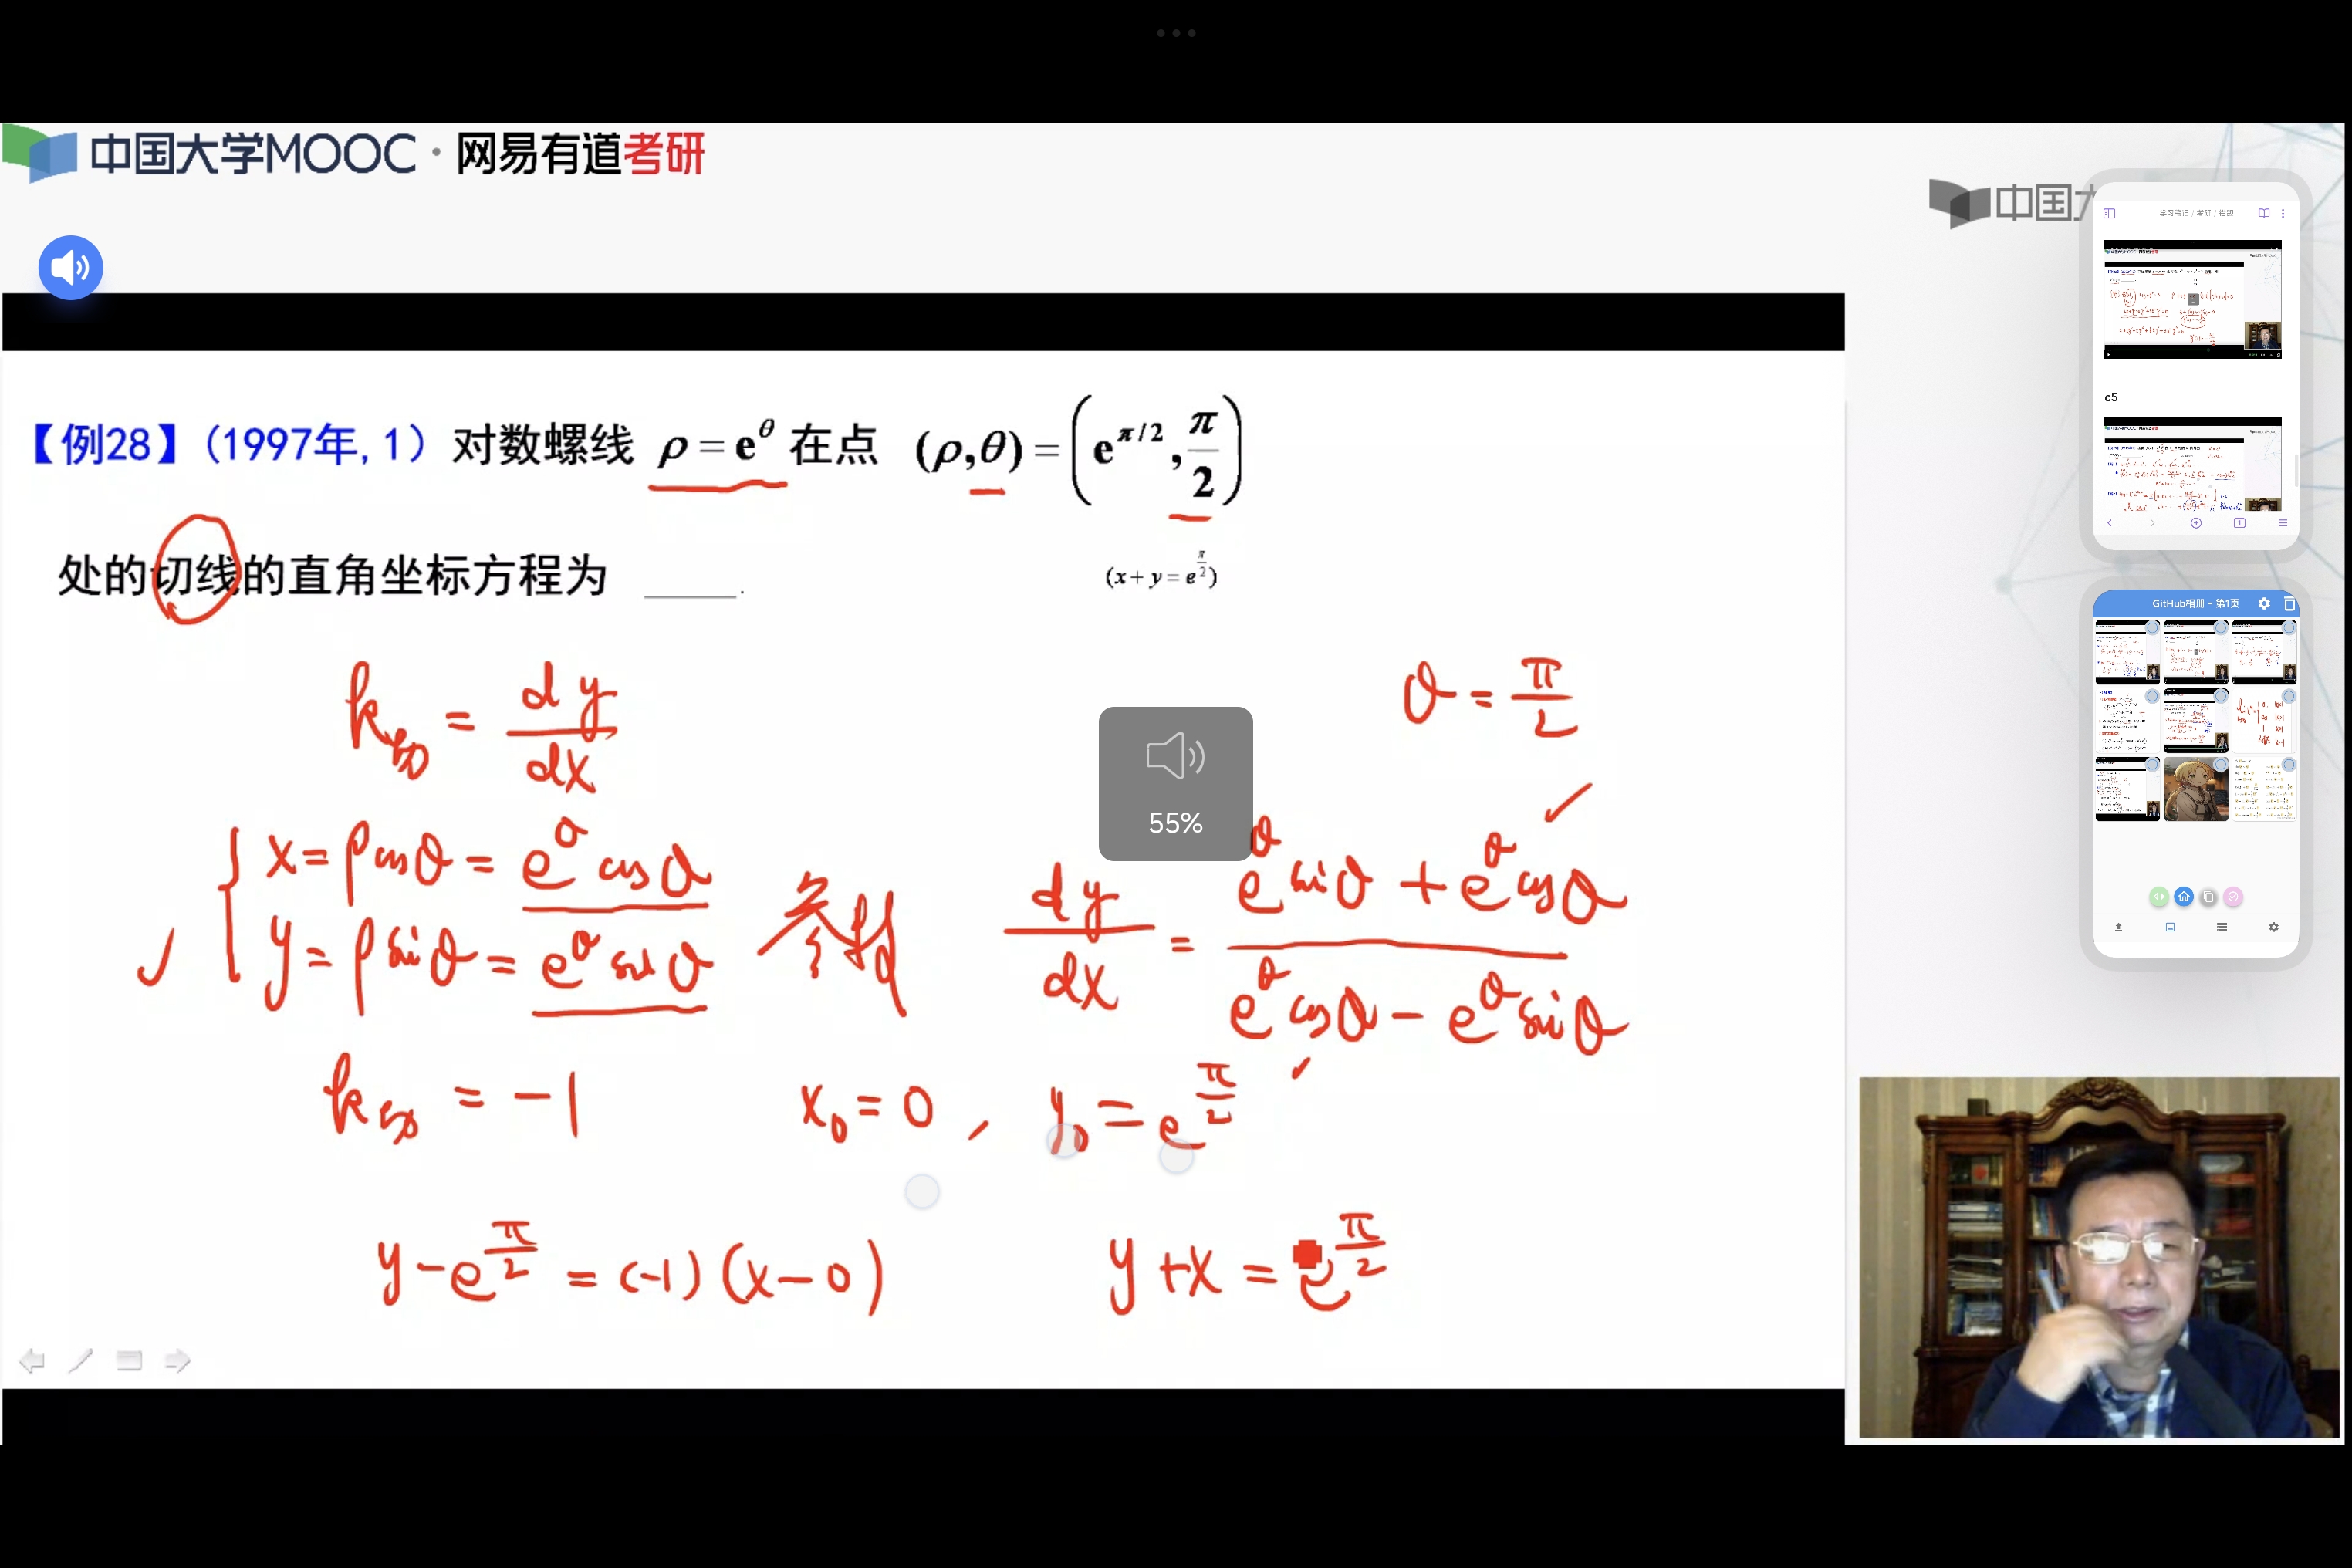 中国大学MOOC · 网易有道考研
中国大
【例28】(1997年, 1) 对数螺线 ρ = e^θ 在点 (ρ,θ) = (e^{π/2}, π/2)
处的切线的直角坐标方程为 ____.
(x + y = e^{π/2})
k切 = dy/dx
θ = π/2
x = ρcosθ = e^θ cosθ
y = ρsinθ = e^θ sinθ
参数
dy/dx = (e^θ sinθ + e^θ cosθ)/(e^θ cosθ − e^θ sinθ)
k切 = −1
x₀ = 0 , y₀ = e^{π/2}
y − e^{π/2} = (−1)(x − 0)
y + x = e^{π/2}
55%
c5
GitHub相册 - 第1页